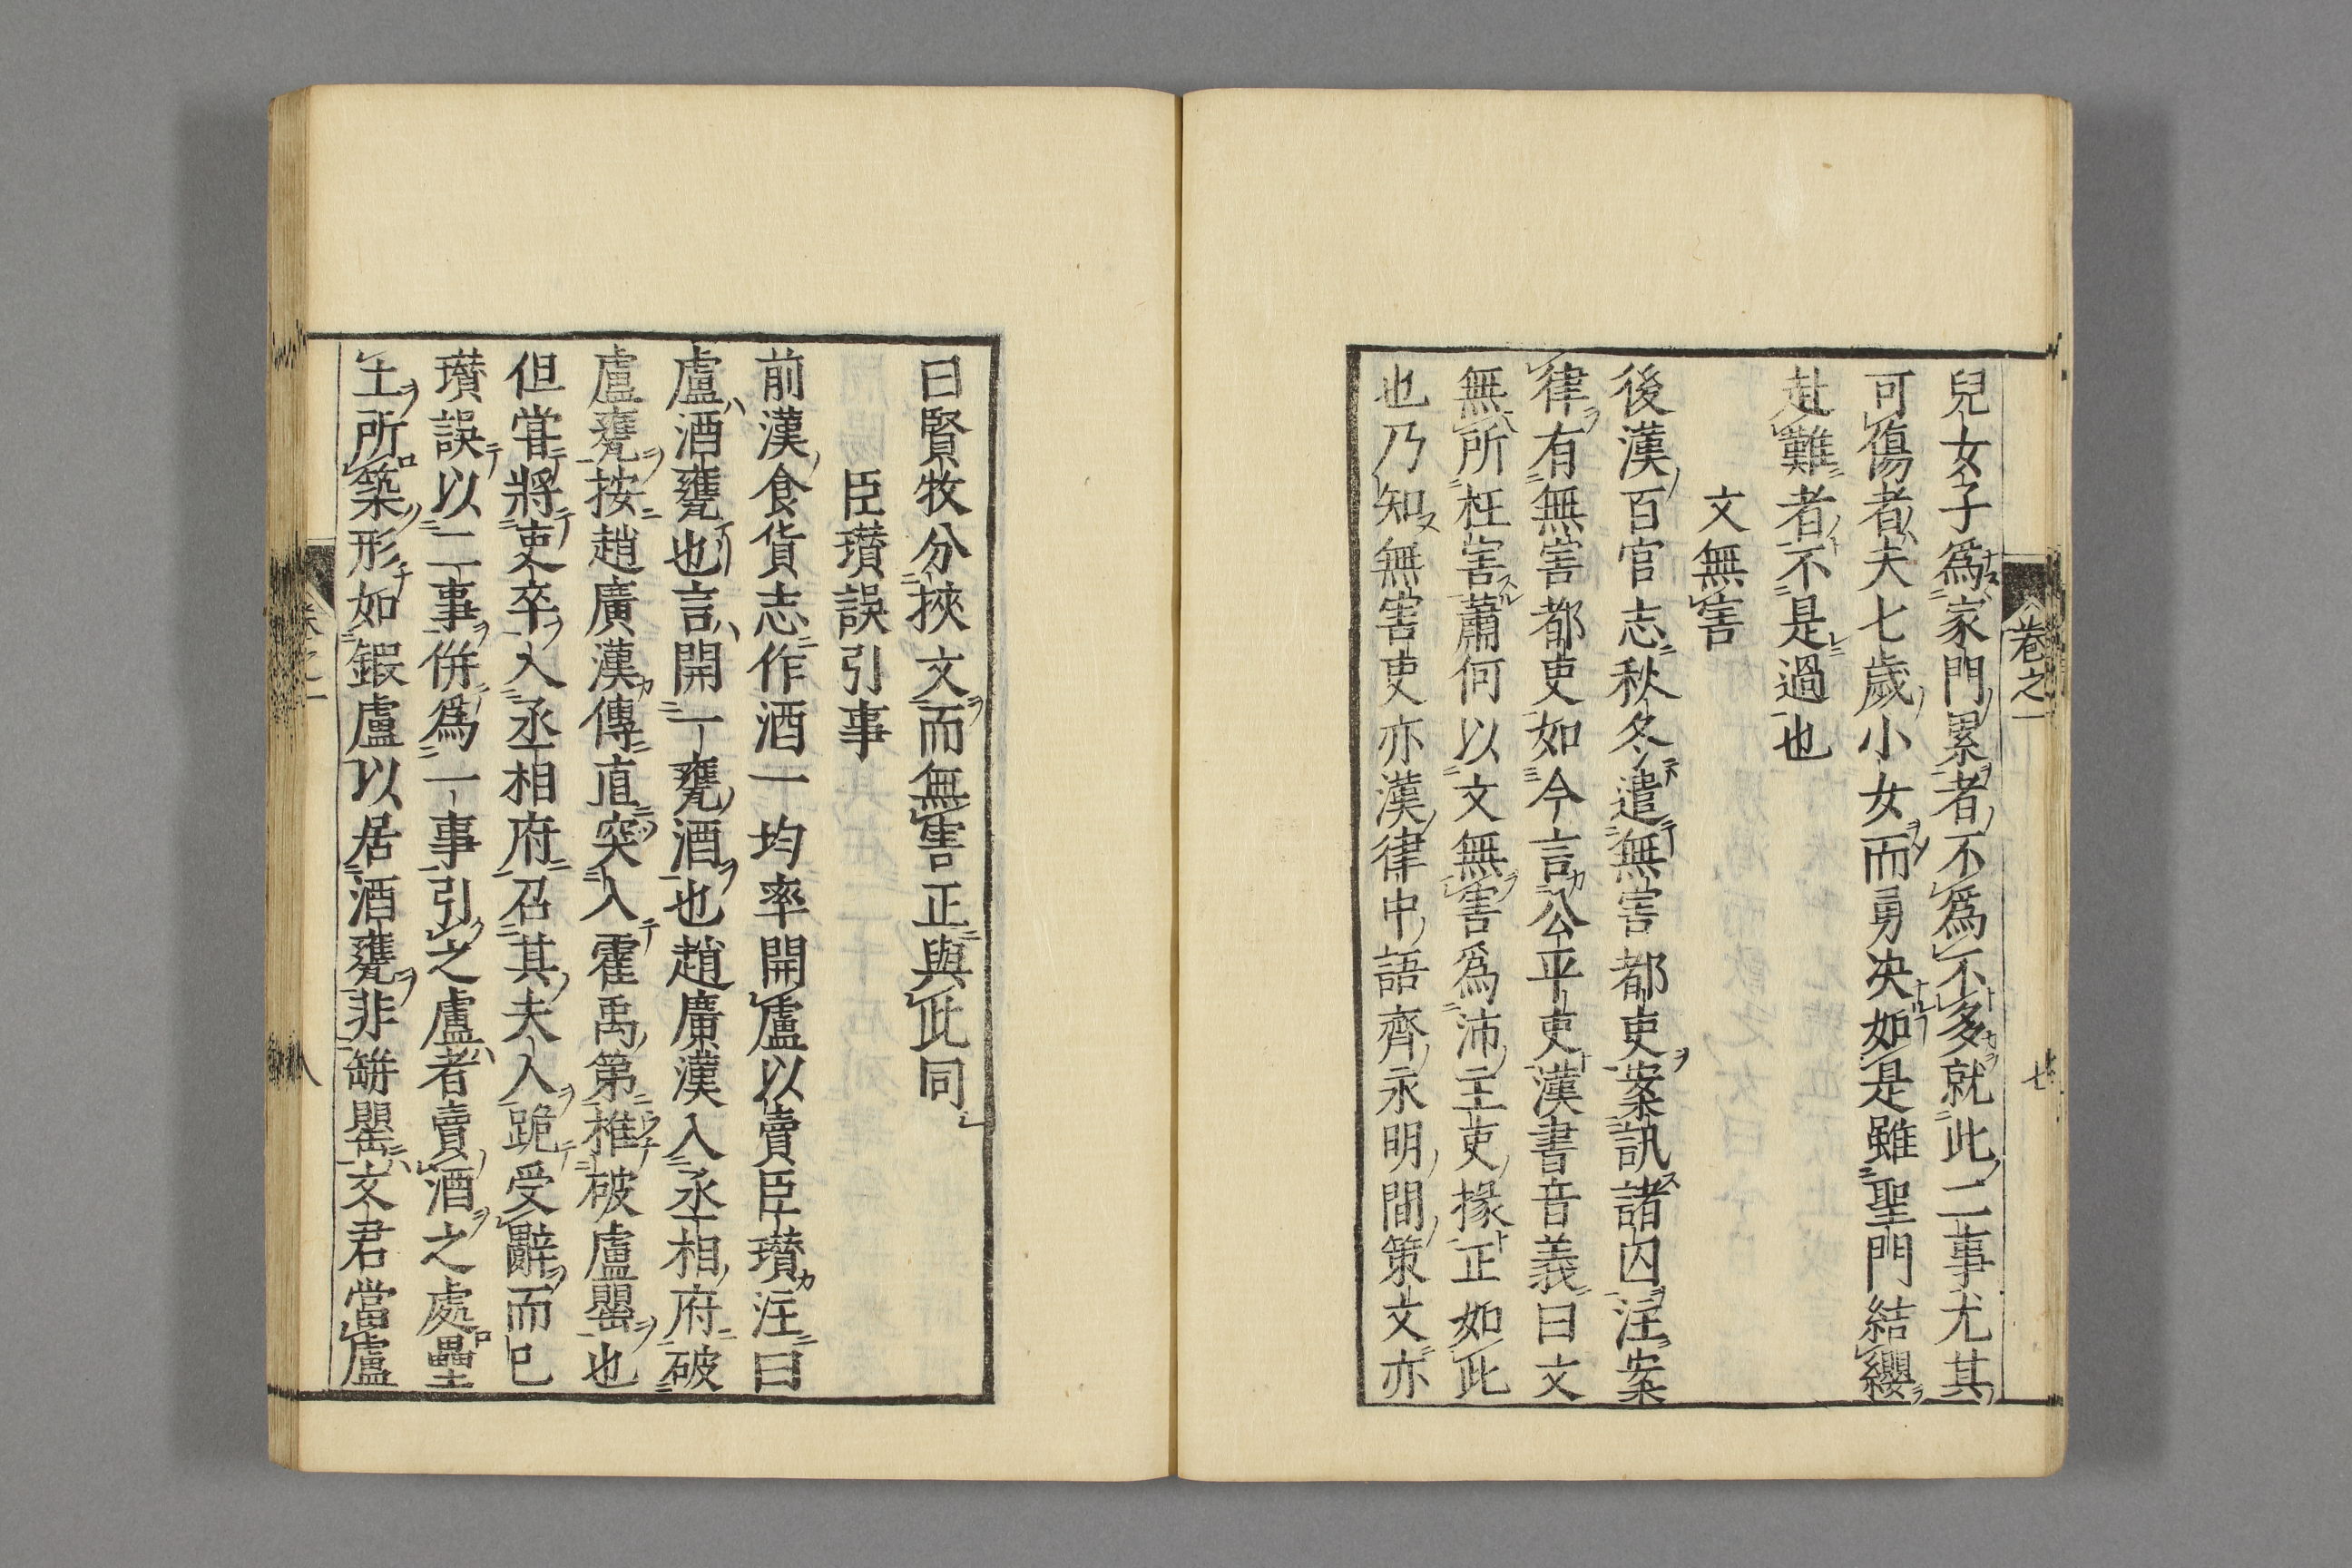 兒女子爲家門累者不爲不多就此二事尤其
可傷者夫七歲小女而勇决如是雖聖門結纓
赴難者不是過也
文無害
後漢百官志秋冬遣無害都吏案訊諸囚注案
律有無害都吏如今言公平吏漢書音義曰文
無所枉害蕭何以文無害爲沛主吏掾正如此
也乃知無害吏亦漢律中語齊永明間策文亦
卷之一
七
曰賢牧分挾文而無害正與此同
臣瓚誤引事
前漢食貨志作酒一均率開盧以賣臣瓚注曰
盧酒甕也言開一甕酒也趙廣漢入丞相府破
盧甕按趙廣漢傳直突入霍禹第椎破盧罌也
但嘗將吏卒入丞相府召其夫人跪受辭而已
瓚誤以二事併爲一事引之盧者賣酒之處壘
土所築形如鍜盧以居酒甕非缾罌文君當盧
卷之一
八